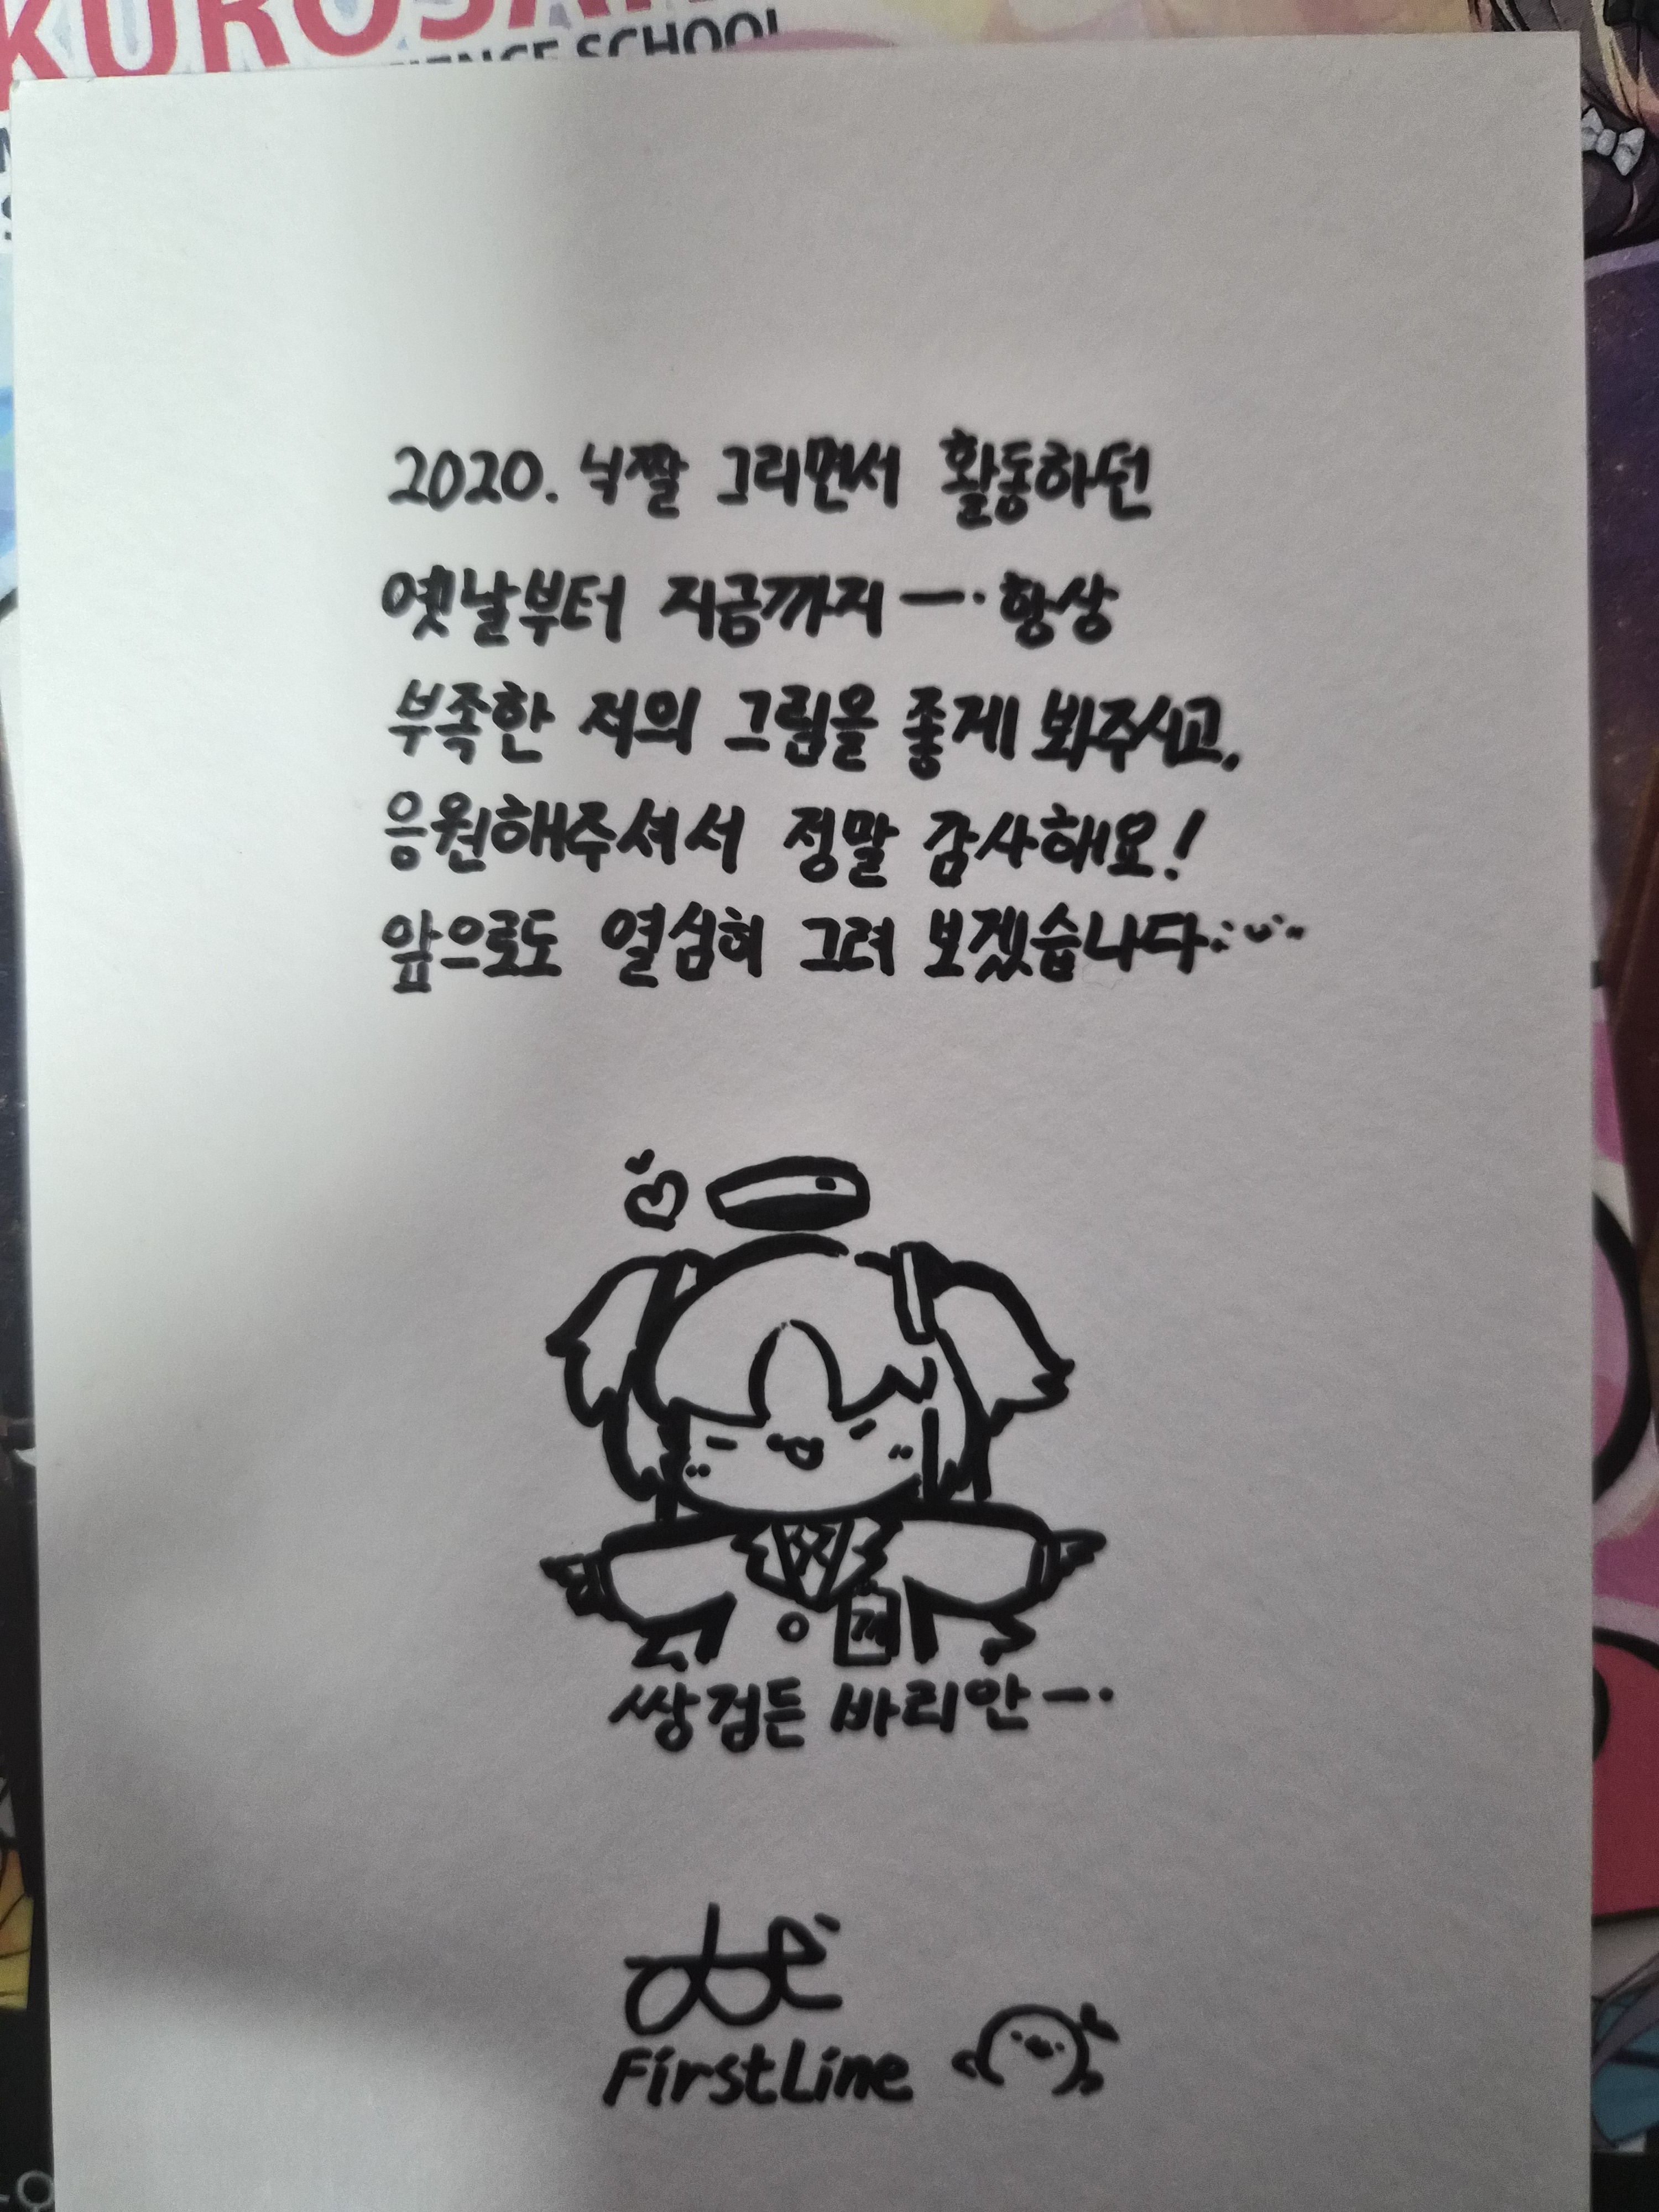 KUROSA
ENCE SCHOOL
2020. 닉짤 그리면서 활동하던
옛날부터 지금까지ㅡ. 항상
부족한 저의 그림을 좋게 봐주시고,
응원해주셔서 정말 감사해요!
앞으로도 열심히 그려 보겠습니다
쌍검든 바리안ㅡ.
FirstLine